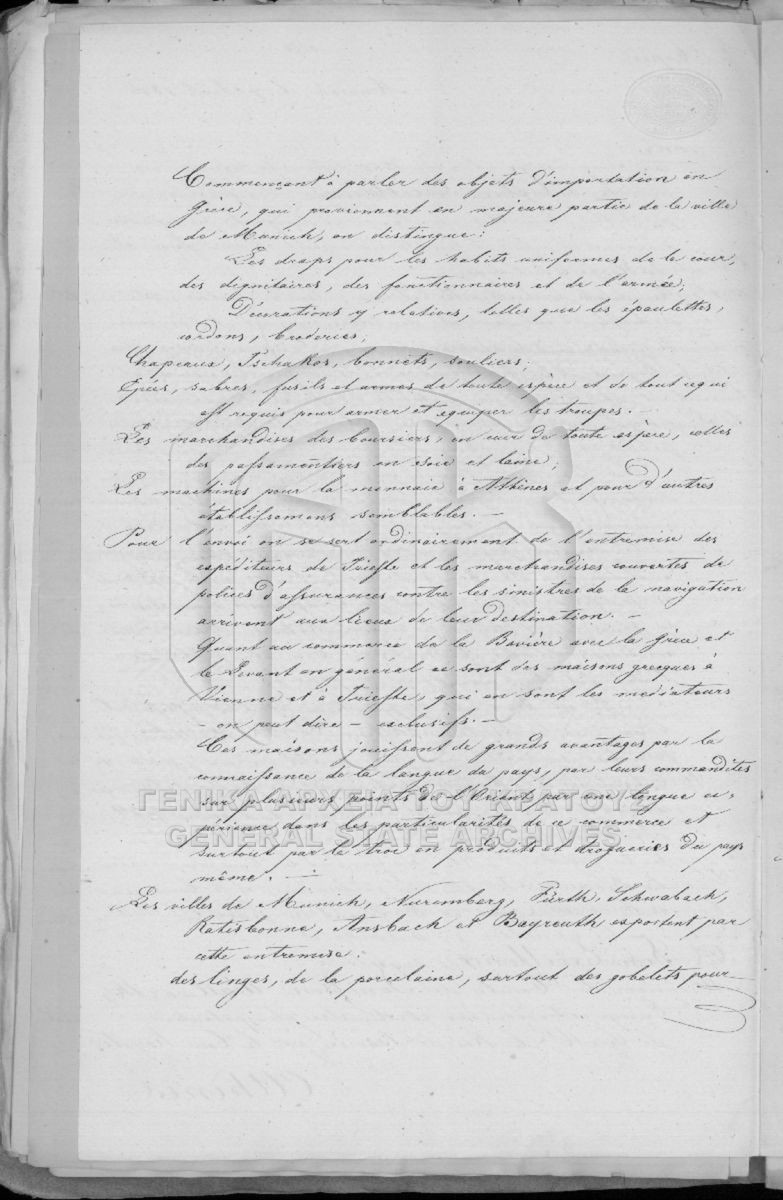 Commençant à parler des objets d'importation en
Grèce, qui proviennent en majeure partie de la ville
de Munich, on distingue:
Les draps pour les habits uniformes de la cour,
des dignitaires, des fonctionnaires et de l'armée;
Décorations y relatives, telles que les épaulettes,
cordons, broderies;
Chapeaux, Tschakos, bonnets, souliers;
Epées, sabres, fusils et armes de toute espèce et de tout ce qui
est requis pour armer et equiper les troupes. —
Les marchandises des boursiers, en cuir de toute espèce, celles
des passamentiers en soie et laine;
Les machines pour la monnaie à Athènes et pour d'autres
établissemens semblables. —
Pour l'envoi on se sert ordinairement de l'entremise des
expéditeurs de Trieste et les marchandises couvertes de
polices d'assurances contre les sinistres de la navigation
arrivent aux lieux de leur destination. —
Quant au commerce de la Bavière avec la Grèce et
le Levant en général ce sont des maisons grecques à
Vienne et à Trieste, qui en sont les mediateurs
— on peut dire — exclusifs. —
Ces maisons jouissent de grands avantages par la
connaissance de la langue du pays, par leurs commandites
sur plusieurs points de l'Orient par une longue ex=
périence dans les particularités de ce commerce et
surtout par le troc en produits et drogueries du pays
même. —
Les villes de Munich, Nuremberg, Fürth, Schwabach,
Ratisbonne, Ansbach et Bayreuth exportent par
cette entremise:
des linges, de la porcelaine, surtout des gobelets pour
ΓΕΝΙΚΑ ΑΡΧΕΙΑ ΤΟΥ ΚΡΑΤΟΥΣ
GENERAL STATE ARCHIVES